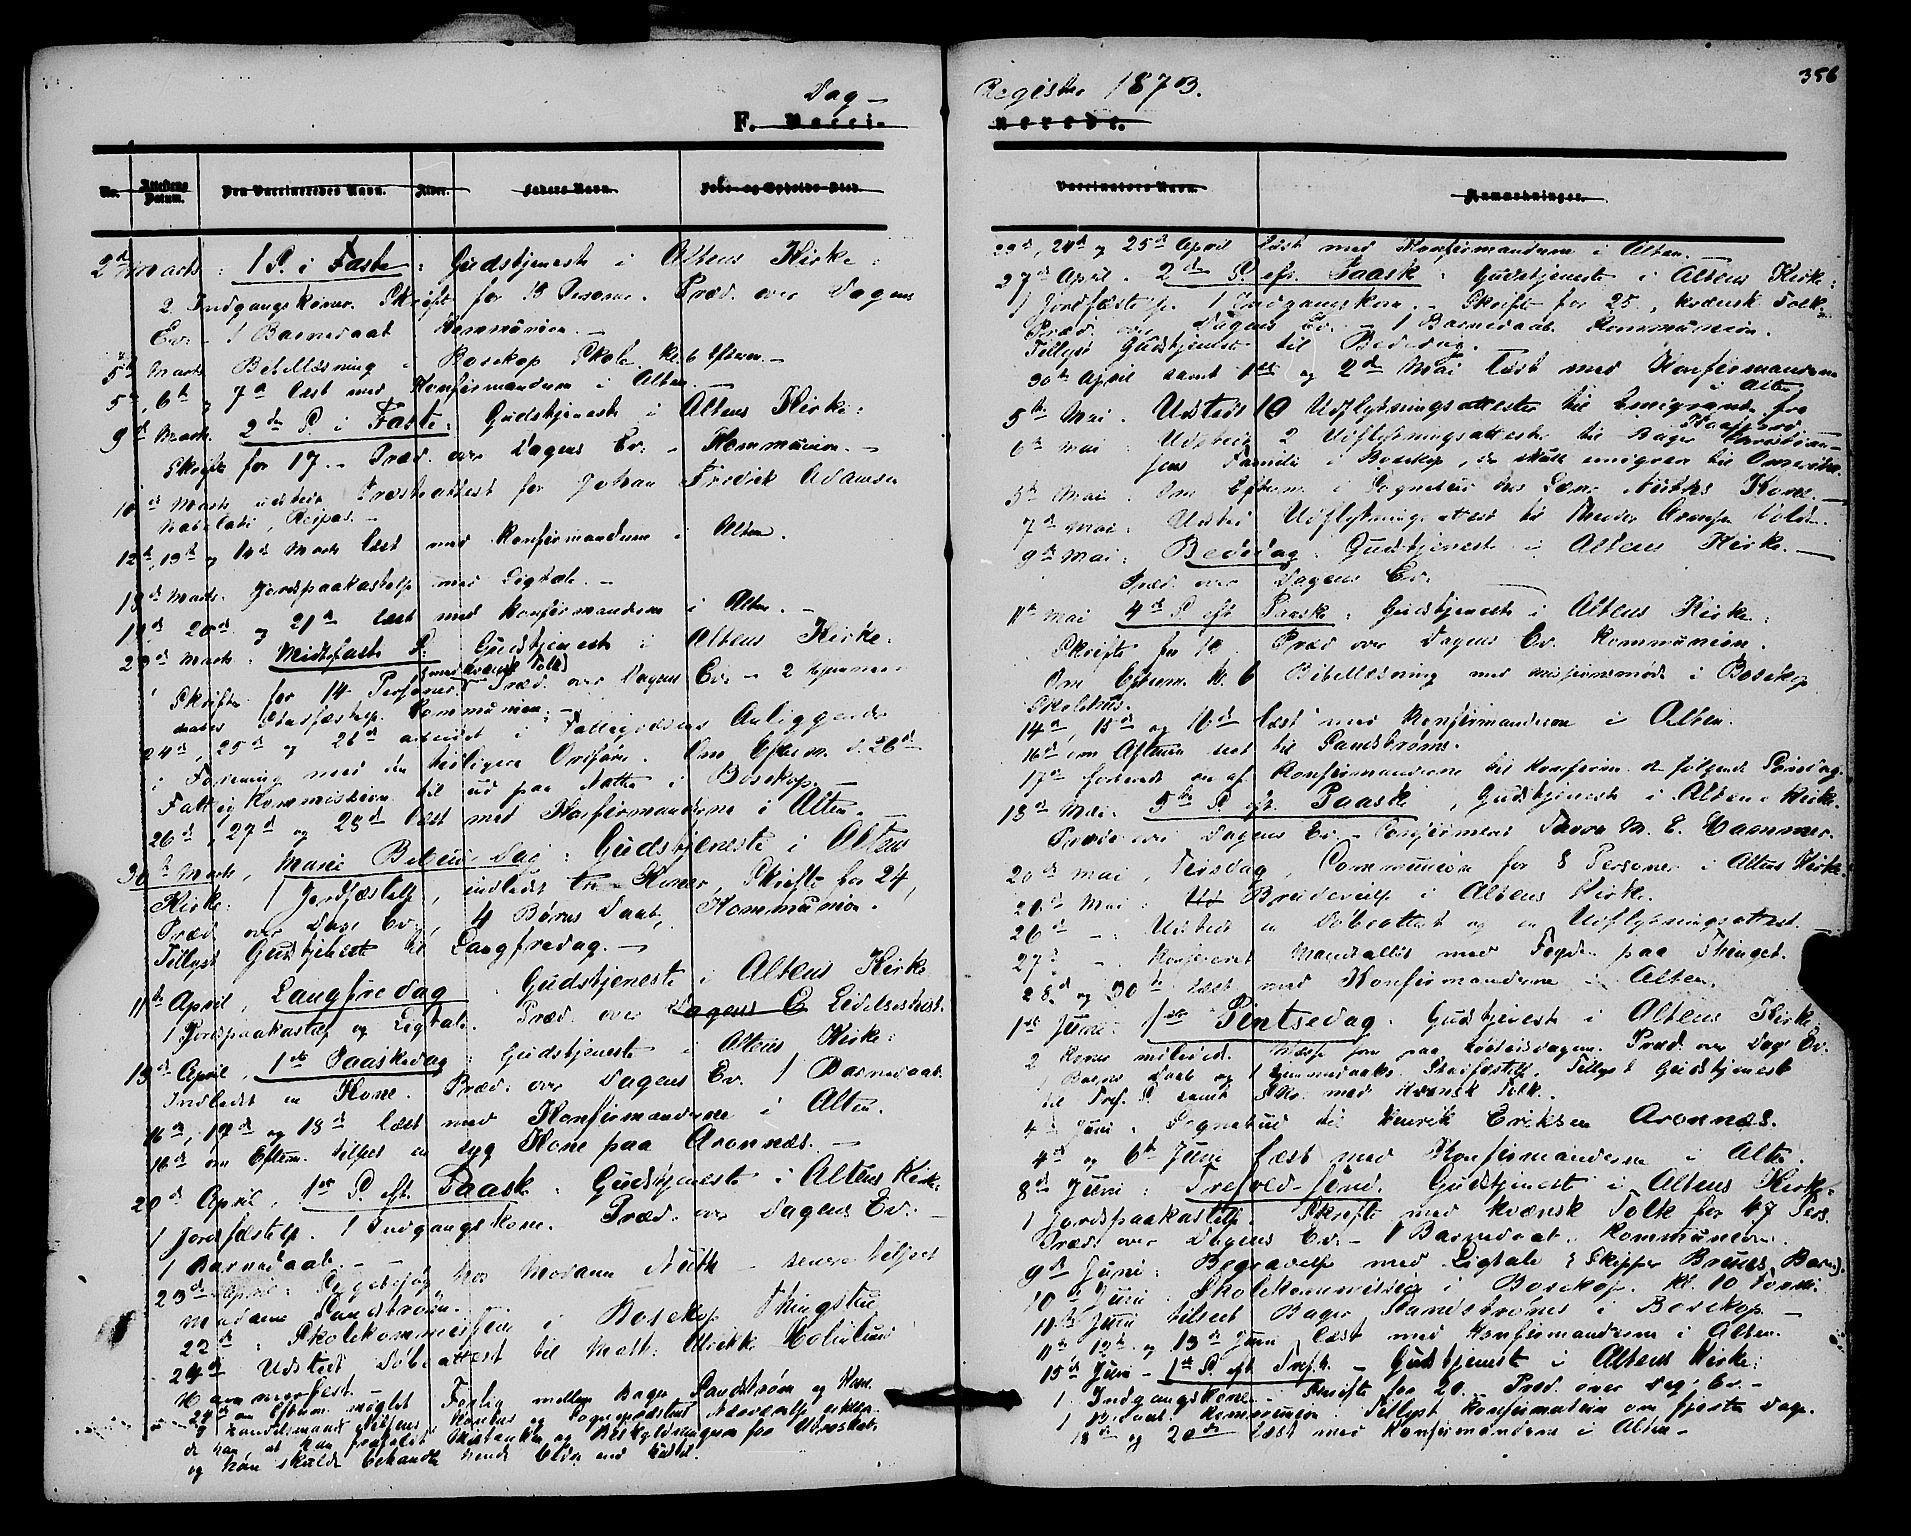 Dag-
Register 1873.
356
F. Vacci-
nerede.
No.
Attestens Datum.
Den Vaccineredes Navn.
Alder.
Faders Navn.
Føde- og Opholds-Sted.
Vaccinators Navn.
Anmærkninger.
2d Marts: 1 S. i Faste: Gudstjeneste i Altens Kirke:
2 Indgangskoner. Skrifte for Personer. Præd. over Dagens
Ev. - 1 Barnedaab Kommunion. -
5te Marts Bibellæsning i Bosekop Skole. Kl. 6 Eftern. -
5te, 6te og 7de læst med Konfirmanderne i Alten. -
9de Marts. 2den S. i Faste: Gudstjeneste i Altens Kirke:
Skrifte for 17. - Præd. over Dagens Ev. - Kommunion. -
Marts udstedt Præsteattest for Johan Fredrik Adamsen
Raipas. -
12te, 13de og 14de Marts læst med Konfirmanderne i Alten.
Marts. Jordpaakastelse med Ligtale. -
20de og 21de læst med Konfirmanderne i Alten. -
23de Marts. Midtfaste S. Gudstjeneste i Altens Kirke.
Skrifte for 14 Personer. (med kvænsk Tolk) Præd. over Dagens Ev. - 2 hjemme-
døbtes Stadfæstelse. Kommunion. -
24de, 25de og 26de arbeidet i Fattigvæsens Anliggende
i Forening med den Om Eftern. d. 26de
Fattigkommission til ud paa Natten i Bosekop. -
26de, 27de og 28de læst med Konfirmanderne i Alten. -
30te Marts, Marie Bebud. Dag: Gudstjeneste i Altens
Kirke: 1 Jordfæstelse, indledt tre Koner, Skrifte for 24,
Præd. over Dags Ev., 4 Børns Daab, Kommunion.
Tillyst Gudstjeneste til Langfredag. -
11te April, Langfredag. Gudstjeneste i Altens Kirke
1 Jordpaakastelse og Ligtale. Præd. over Dagens E Lidelseshist.
13de April, 1ste Paaskedag: Gudstjeneste i Altens Kirke:
Indledet en Kone. Præd. over Dagens Ev. 1 Barnedaab.
16de, 17de og 18de læst med Konfirmanderne i Alten.
16de om Eftern. tilseet en syg Kone paa Aronnæs. -
20de April, 1ste S. eft. Paaske: Gudstjeneste i Altens Kirke
1 Jordfæstelse. 1 Indgangskone. Præd. over Dagens Ev. -
1 Barnedaab. -
23de April: Sygebesøg hos Madam Nuth - senere tilseet
Madame Sandstrøm.
22de: Skolekommission i Bosekop Thingstue
24de Udstedt Døbeattest til Matt. Ulrikke
Hammerfest. -
24de om Eftern. mæglet Forlig mellem Bager Sandstrøm og Kone.
og hun skulde behandle hende bedre end hidtil.
23de, 24de og 25de April læst med Konfirmanderne i Alten. -
27de April. 2den S. eft. Paaske: Gudstjeneste i Altens Kirke:
1 Jordfæstelse. 1 Indgangskone. - Skrifte for 25, kvænsk Tolk.
Præd. over Dagens Ev. - 1 Barnedaab. Kommunion.
Tillyst Gudstjeneste til Bededag.
30te April samt 1ste og 2den Mai læst med Konfirmanderne
i Alten
5te Mai. Udstedt 10 Udflytningsattester til Emigranter fra
Kaafjord.
6te Mai Udstedt 2 Udflytningsattester til Bager Christian-
sens Familie i Bosekop, der skulle emigrere til Amerika.
5te Mai. Om Eftern. i Sognebud hos Nuths Kone. -
7de Mai. Udstedt Udflytningsattest til
9de Mai: Bededag. Gudstjeneste i Altens Kirke. -
Præd. over Dagens Ev. -
11te Mai 4de S. eft. Paaske: Gudstjeneste i Altens Kirke:
Skrifte for Præd over Dagens Ev. Kommunion.
Om Eftern. kl. 6 Bibellæsning med Missionsmøde i Bosekop
Skolehus.
14de, 15de og 16de læst med Konfirmanderne i Alten.
16de om Aftenen seet til Sandstrøms.
17de en af Konfirmanderne til Konfirm. den følgende Søndag.
18de Mai: 5te S. eft. Paaske, Gudstjeneste i Altens Kirke.
Præd. over Dagens Ev. - Konfirmeret Thora M. E. Hammer.
20de Mai, Tirsdag, Communion for 8 Personer i Altens Kirke
Mai: Brudevielse i Altens Kirke.
26de -: Udstedt en Døbeattest og en Udflytningsattest.
27de -. Konfereret Mandtallet med Fogden paa Thinget.
28de og 30te læst med Konfirmanderne i Alten.
1ste Juni: 1ste Pintsedag. Gudstjeneste i Altens Kirke.
2 Koner indledt. Præd. over Dags Ev.
1 Barns Daab og 1 hjemmedøbts Stadfæstelse. Tillyst Gudstjeneste
til Tref. S. samt Skr. med kvænsk Tolk.
4de Juni. Sognebud til Henrik Eriksen Aronnæs.
4de og 6te Juni læst med Konfirmanderne i Alten
8de Juni: Trefold. Sønd. Gudstjeneste i Altens Kirke.
1 Jordpaakastelse. Skrifte med kvænsk Tolk for 47 Pers.
Præd. over Dagens Ev. - 1 Barnedaab. Kommunion.
9de Juni: Begravelse med Ligtale (Skipper Bruuns Barn).
10de Juni. Skolekommission i Bosekop. kl. 10 Form.
11te Juni tilseet Bager Sandstrøms i Bosekop -
11te 12te og 13de Juni læst med Konfirmanderne i Alten.
15de Juni - 1ste S. eft. Tref. - Gudstjeneste i Altens Kirke:
1 Indgangskone. - Skrifte for 20. - Præd. over Dags Ev. -
1 Kommunion. Tillyst Konfirmation om fjorten Dage.
18de og 20de læst med Konfirmanderne i Alten -